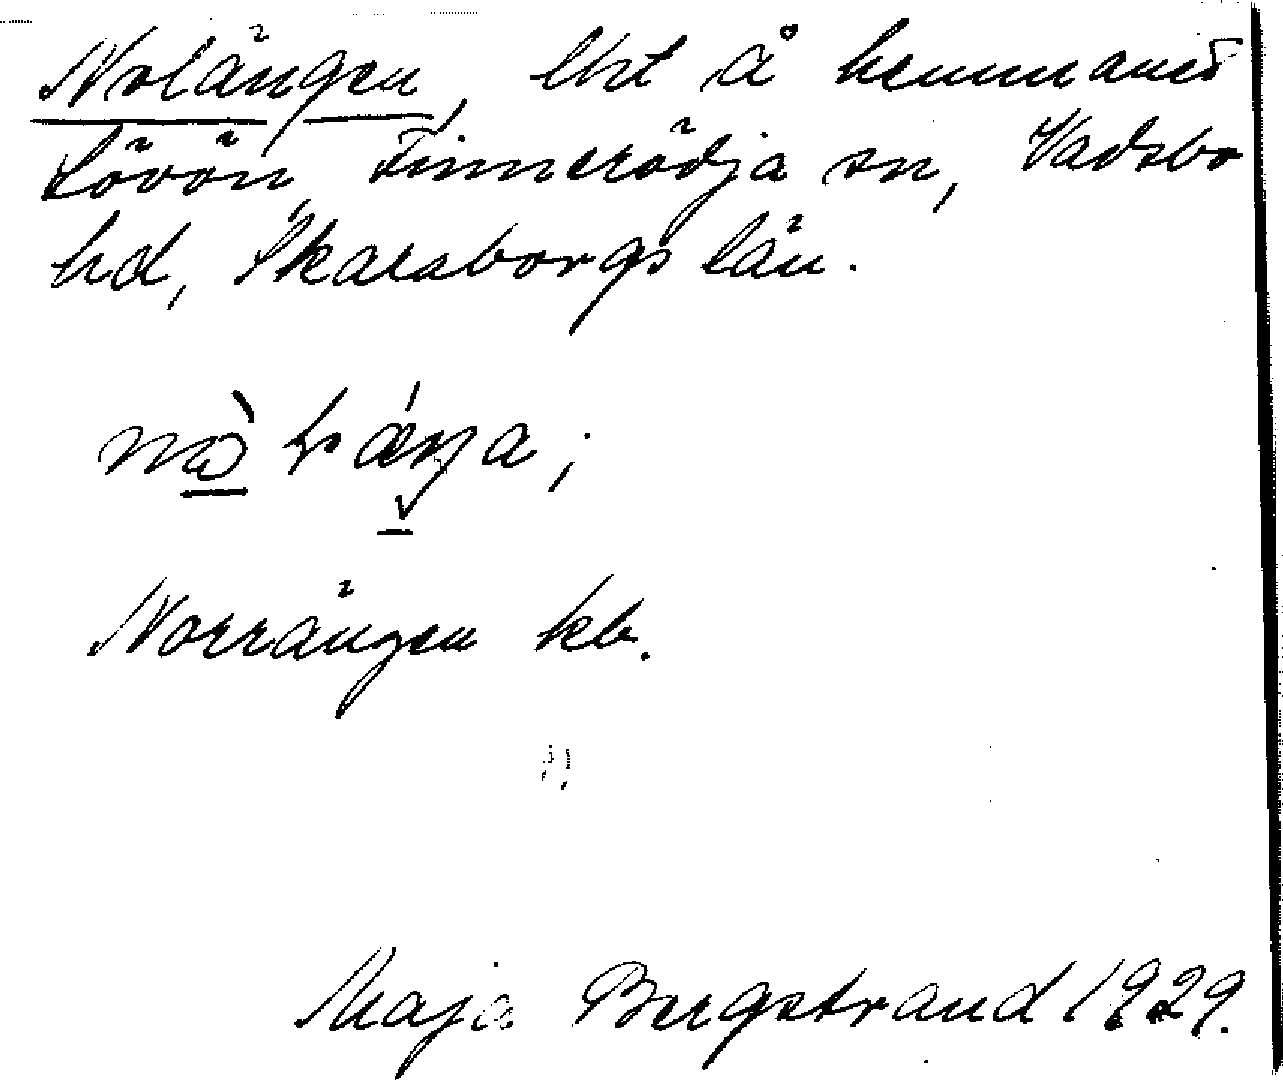 Nolängen, lht å hemmanet
Lövön, Finnerödja sn, Vadsbo
hd, Skaraborgs län.
Norrängen kb.
Maja Bergstrand 1929.